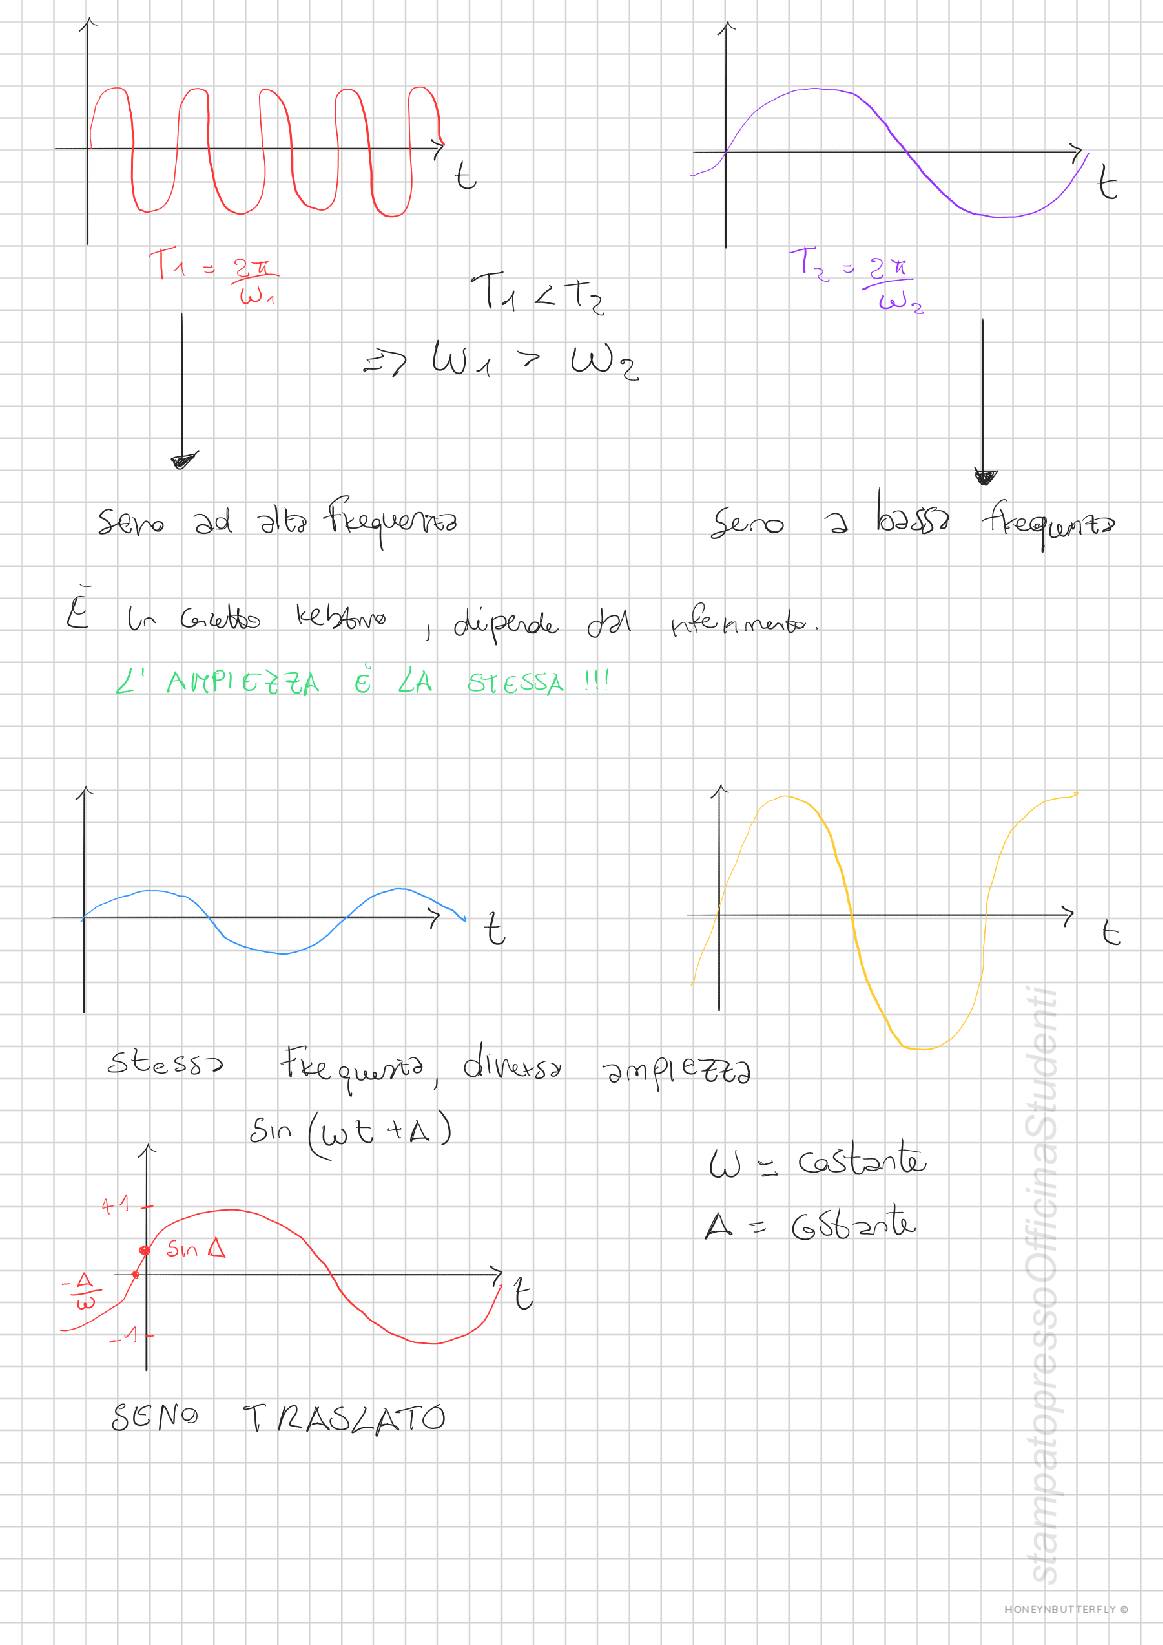 t
t
T1 = 2π/ω1
T2 = 2π/ω2
T1 < T2
=> ω1 > ω2
seno ad alta frequenza
seno a bassa frequenza
È un concetto relativo, dipende dal riferimento.
L'AMPIEZZA È LA STESSA!!!
t
t
stessa frequenza, diversa ampiezza
sin(ωt+Δ)
ω = costante
Δ = costante
+1
sin Δ
-Δ/ω
t
-1
SENO TRASLATO
stampatopressoOfficinaStudenti
HONEYNBUTTERFLY ©